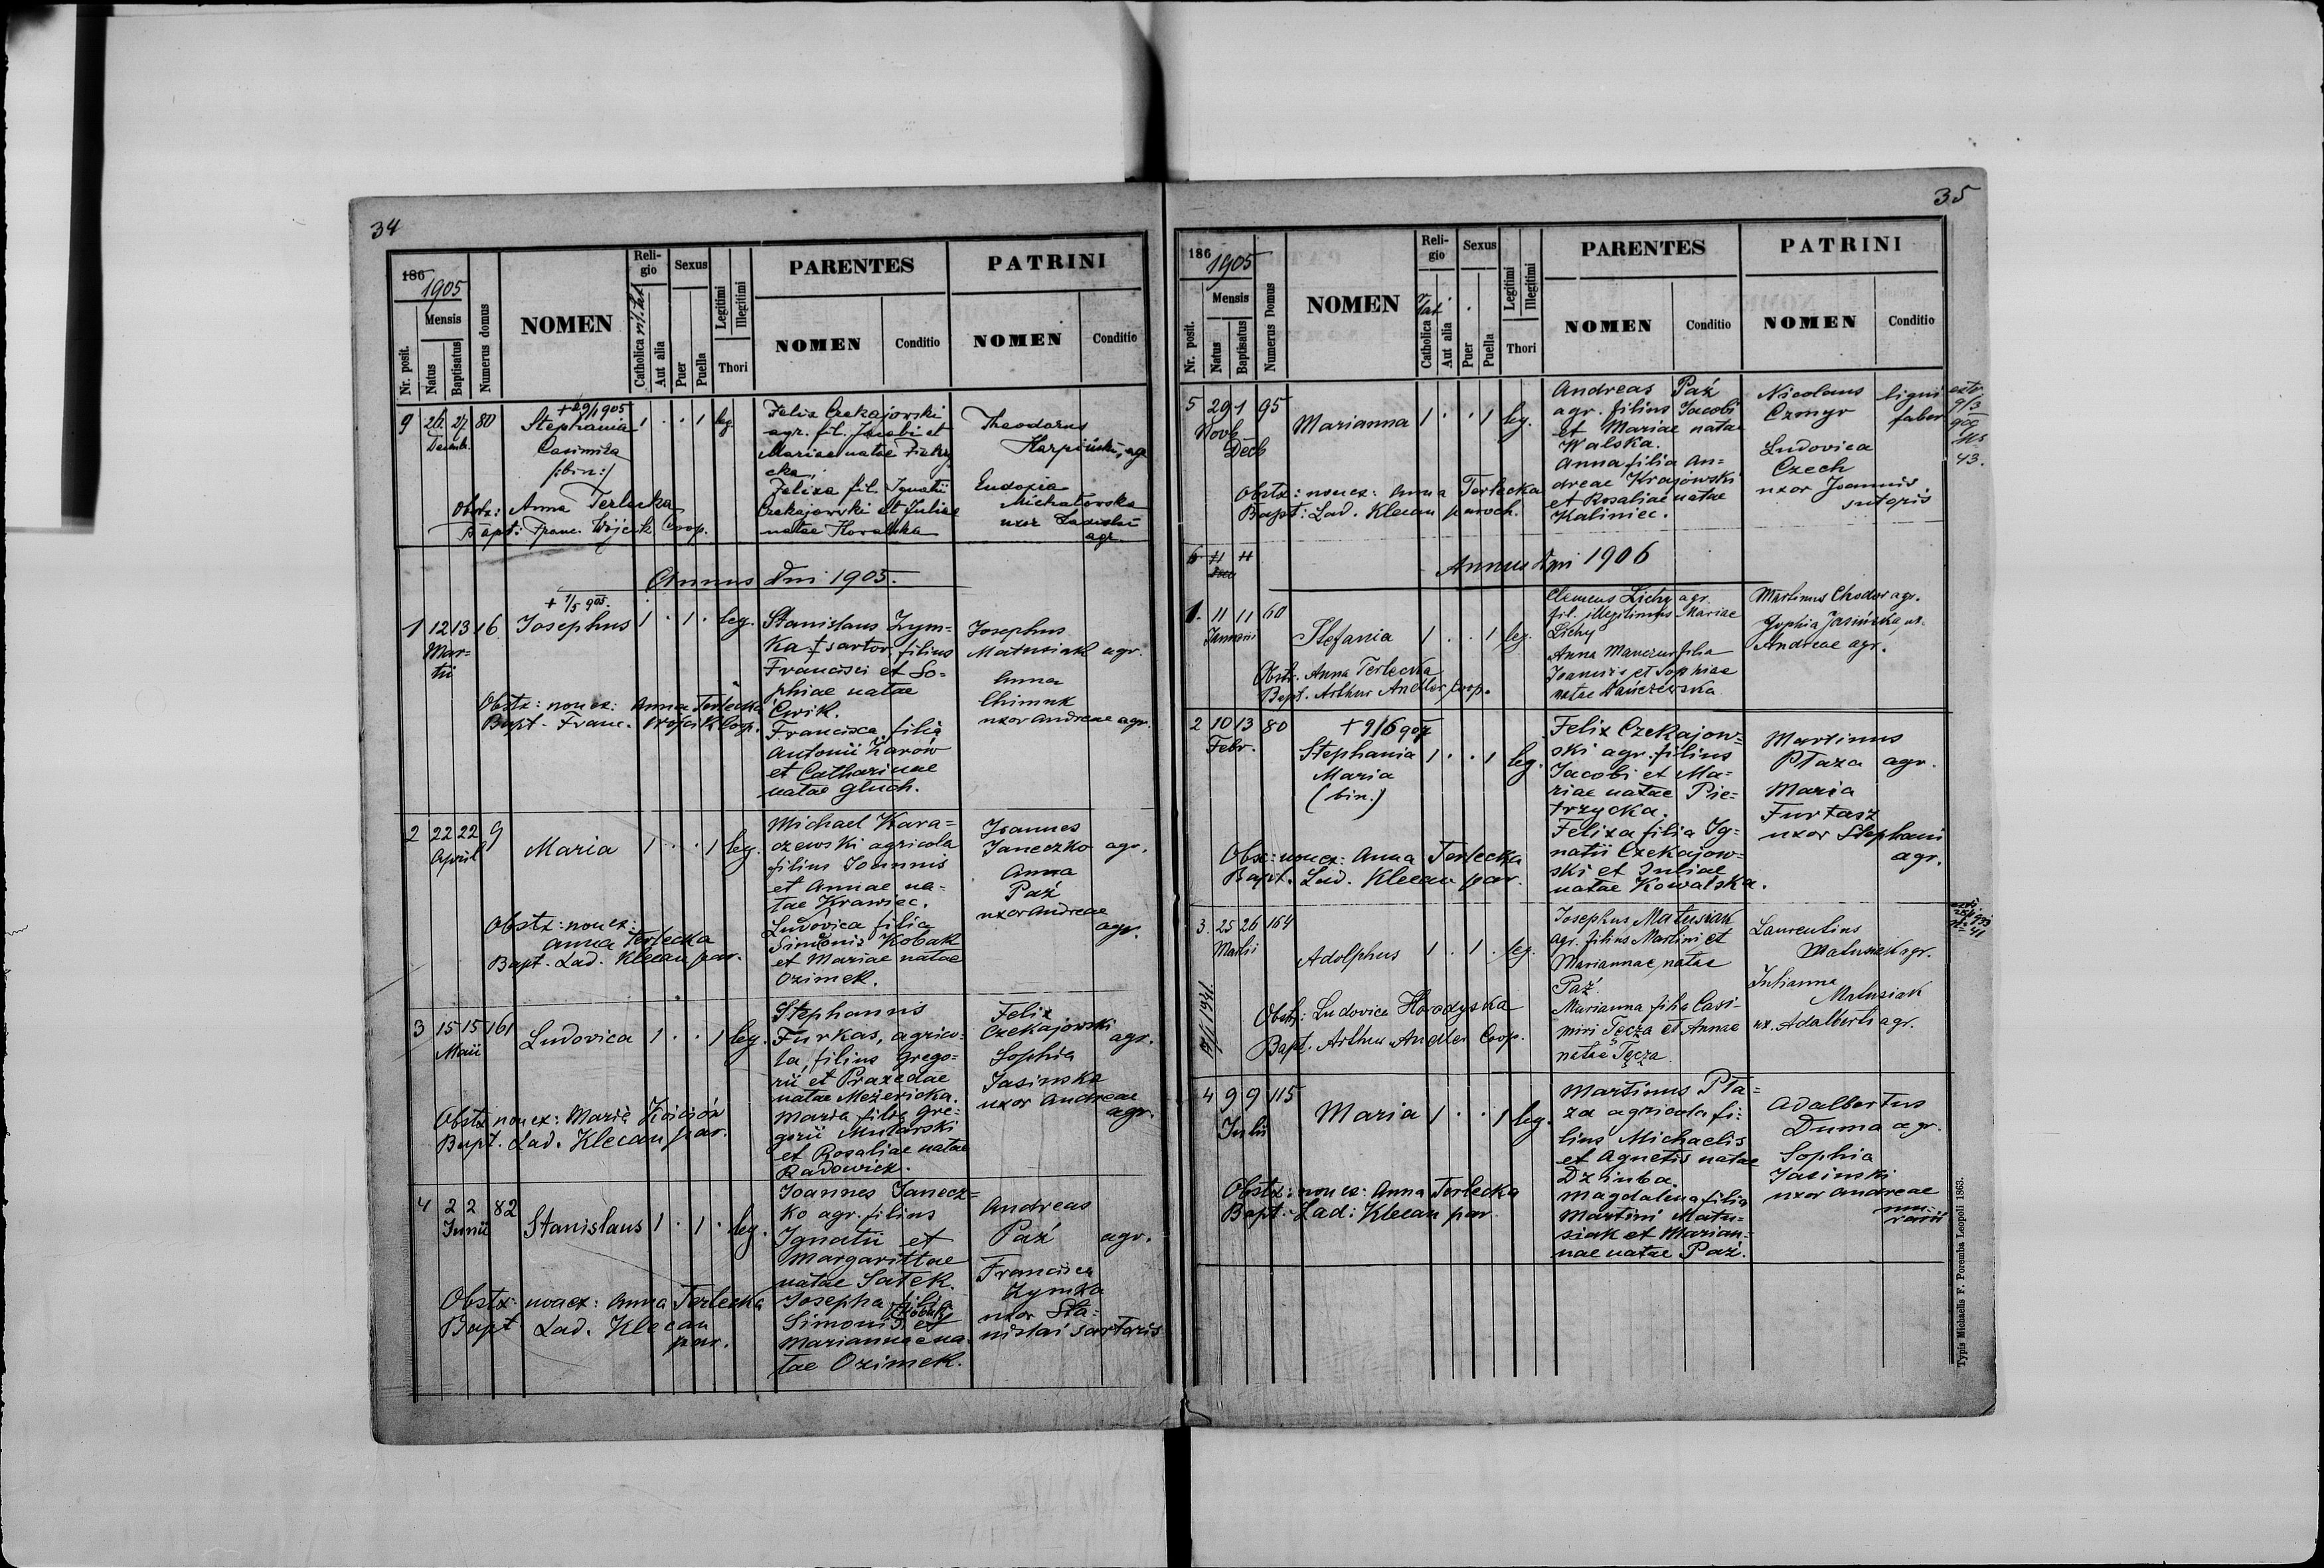 34
186
1905
Nr. posit.
Mensis
Natus
Baptisatus
Numerus domus
NOMEN
Reli-
gio
Catholica
Aut alia
Sexus
Puer
Puella
Legitimi
Illegitimi
Thori
PARENTES
NOMEN
Conditio
PATRINI
NOMEN
Conditio
9 26 27 80
Decemb.
Stephania
Casimira
/:bin:/
1 . . 1 leg.
Felix Czekajowski
agr. fil. Jacobi et
Mariae natae
Felixa fil. Ignatii
Czekajowski et Juliae
natae Kowalska
Theodorus
Karpiński, agr
Eudoxia
Michałowska
uxor Ladislai
agr.
Obstz: Anna Terlecka
Bapt: Franc. Wójcik Coop.
Annus Dni 1905.
+ 1/5 905.
1 12 13 16
Mar=
tii
Josephus 1 . 1 . leg.
Stanislaus Zym=
ka sartor, filius
Francisci et So=
phiae natae
Ćwik.
Francisca, filia
Antonii Żarów
et Catharinae
natae Głuch.
Josephus
Matusiak agr.
Anna
Chimuk
uxor Andreae agr.
Obstz: non ex: Anna Terlecka
Bapt. Franc. Wójcik Coop.
2 22 22 9
April
Maria 1 . . 1 leg.
Michael Kara=
czewski agricola
filius Joannis
et Annae na=
tae Krawiec.
Ludovica filia
Simonis Kobak
et Mariae natae
Ozimek.
Joannes
Janeczko agr.
Anna
Paź
uxor Andreae
agr.
Obstz: non ex:
Anna Terlecka
Bapt. Lad. Klecan par.
3 15 15 161
Maii
Ludovica 1 . . 1 leg.
Stephanus
Furkas, agrico=
la, filius Grego=
rii et Praxedae
natae Meżericka.
Maria filia Gre=
gorii Mularski
et Rosaliae natae
Radowicz.
Felix
Czekajowski
agr.
Sophia
Jasinska
uxor Andreae
agr.
Obstz non ex: Maria
Bapt. Lad. Klecan par.
4 2 2 82
Junii
Stanislaus 1 . 1 . leg.
Joannes Janecz=
ko agr. filius
Ignatii et
Margarittae
natae Sałek.
Josepha filia
Simonis et
Mariannae na=
tae Ozimek.
Andreas
Paź agr.
Francisca
Zymka
uxor Sta=
nislai sartoris
Obstz: non ex: Anna Terlecka
Bapt Lad. Klecan
par.
35
186
1905
Nr. posit.
Mensis
Natus
Baptisatus
Numerus Domus
NOMEN
Reli-
gio
Catholica
Aut alia
Sexus
Puer
Puella
Legitimi
Illegitimi
Thori
PARENTES
NOMEN
Conditio
PATRINI
NOMEN
Conditio
5 29 1 95
Novb
Decb
Marianna 1 . . 1 leg.
Andreas Paź
agr. filius Jacobi
et Mariae natae
Walska.
Anna filia An=
dreae Krajowski
et Rosaliae natae
Kaliniec.
Nicolaus ligni
Czmyr faber
Ludovica
Czech
uxor Joannis
sutoris
Obstz: non ex: Anna Terlecka
Bapt: Lad. Klecan paroch.
6 11 11
Annus Dni 1906
1. 11 11 60
Januarii
Stefania 1 . . 1 leg
Clemens Lichy agr.
fil. illegitimus Mariae
Lichy
Anna Manczur filia
Joannis et Sophiae
natae Dańczewska
Martinus Chodor agr.
Sophia Jasińska, ux.
Andreae agr.
Obstr. Anna Terlecka
Bapt. Arthur Andler, Coop.
2 10 13 80
Febr.
+ 9/6 907
Stephania 1 . . 1 leg.
Maria
(bin.)
Felix Czekajow=
ski agr. filius
Jacobi et Ma=
riae natae Pie=
trzycka.
Felixa filia Ig=
natii Czekajow=
ski et Juliae
natae Kowalska.
Martinus
Płaza agr.
Maria
Furtasz
uxor Stephani
agr.
Obst: non ex: Anna Terlecka
Bapt. Lad. Klecan par.
3. 25 26 164
Martii
Adolphus 1 . 1 . leg.
Josephus Matusiak
agr. filius Martini et
Mariannae, natae
Paź.
Marianna filia Casi-
miri Tęcza et Annae
natae Tęcza.
Laurentius
Matusiak agr.
Julianna
Matusiak
ux. Adalberti agr.
Obstz: Ludovica Horodyska
Bapt. Arthur Andler Coop.
4 9 9 115
Julii
Maria 1 . . 1 leg.
Martinus Pła=
za agricola fi=
lius Michaelis
et Agnetis natae
Dziuba.
Magdalena filia
Martini Matu=
siak et Marian=
nae natae Paź.
Adalbertus
Duma agr.
Sophia
Jasinski
uxor Andreae
mu=
rarii
Obstz: non ex: Anna Terlecka
Bapt. Lad: Klecan par.
Typis Michaelis F. Poremba Leopoli 1863.